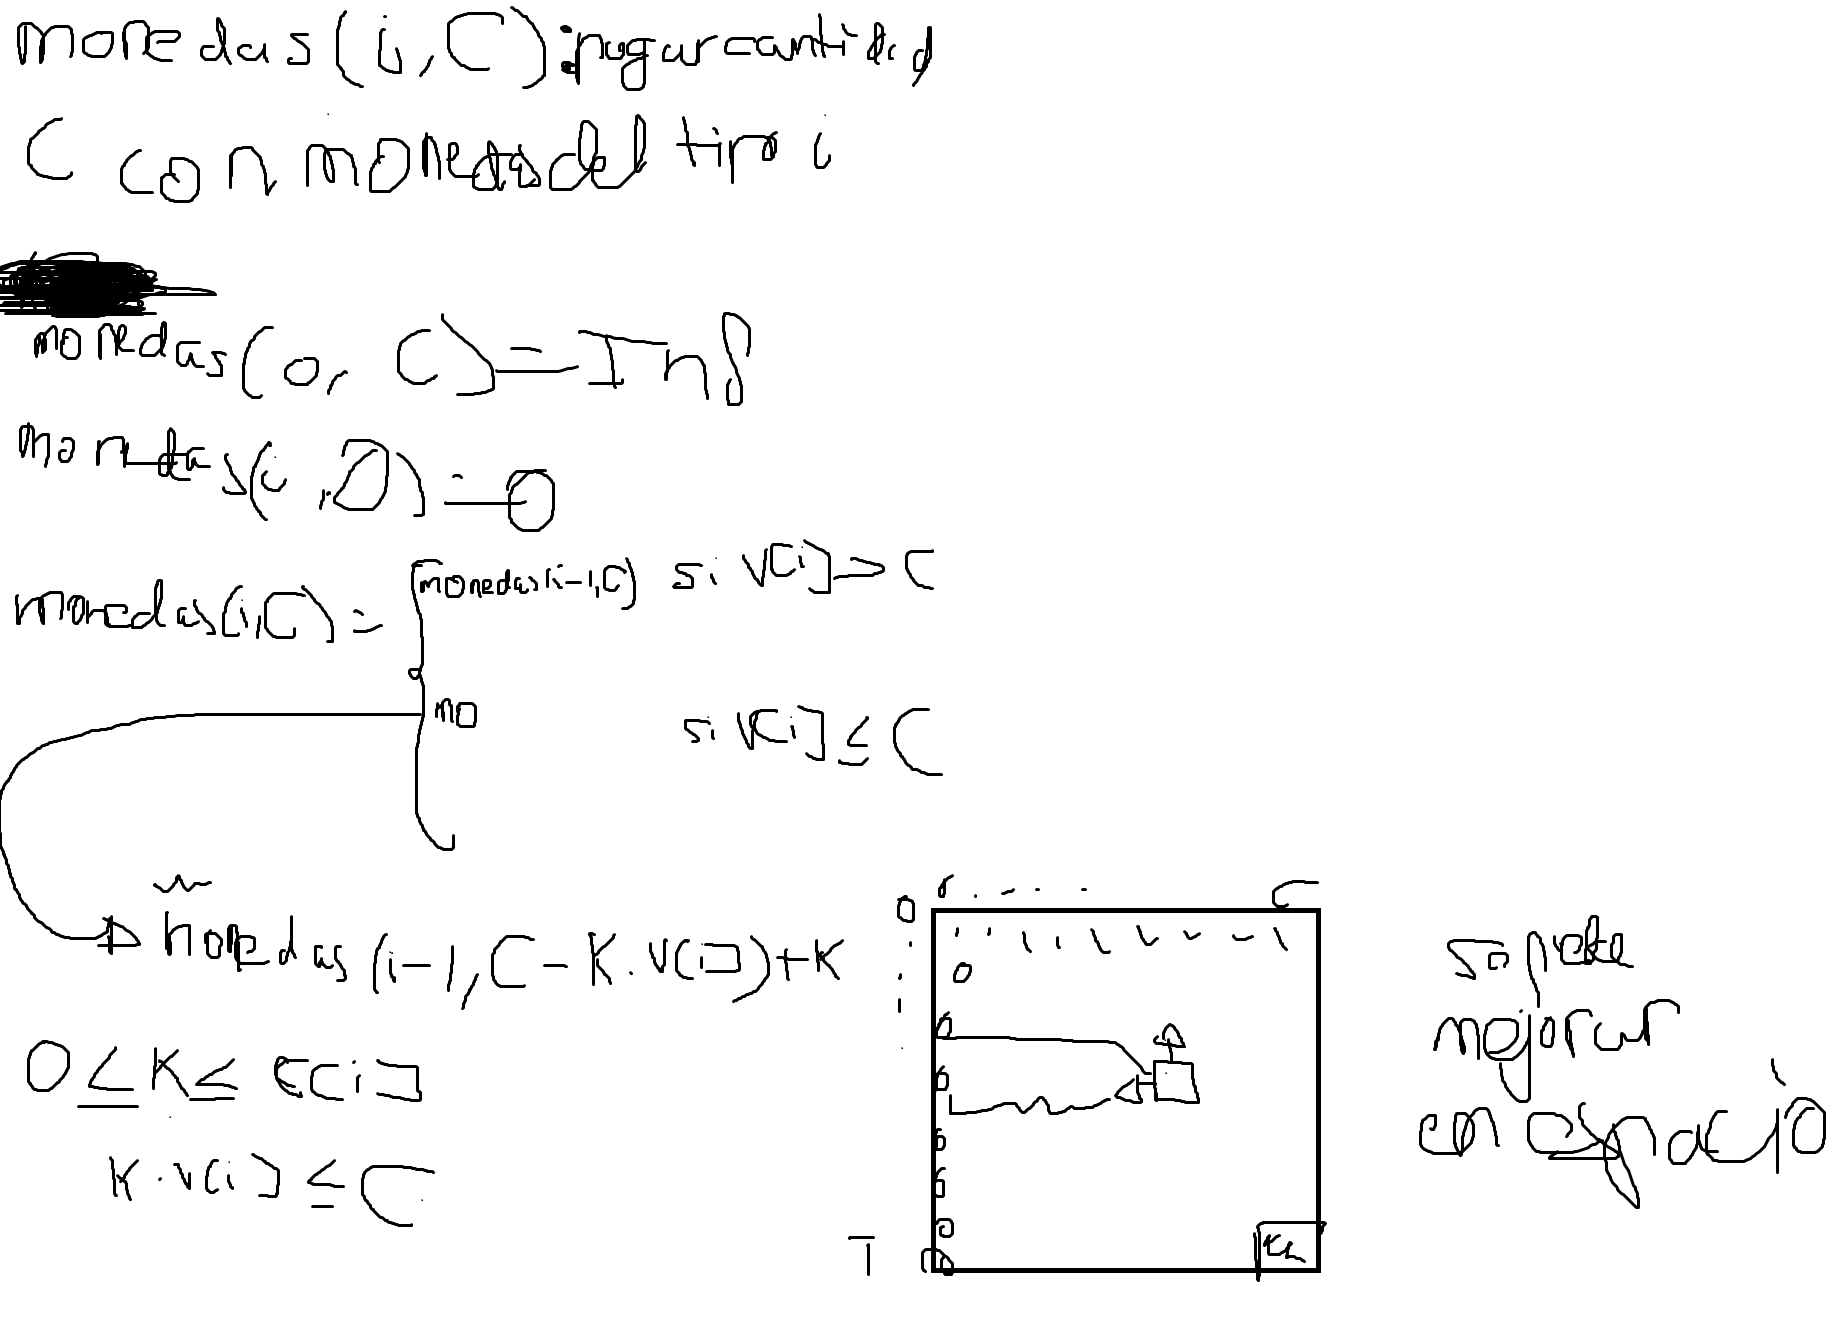 monedas(i,C):pagar cantidad
C con monedas del tipo i
monedas(0, C)=Inf
monedas(i,0)=0
monedas(i,C)= monedas(i-1,C) si v[i]>C
mo si v[i]≤C
monedas(i-1,C-K·v[i])+K
0≤K≤c[i]
K·v[i]≤C
0 C
0
T
se puede
mejorar
en espacio